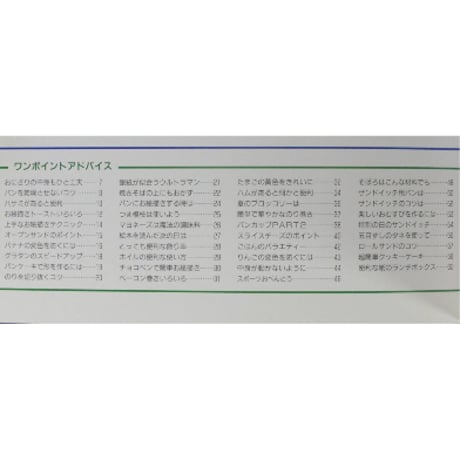 ワンポイントアドバイス
おにぎりの中身もひと工夫 7
パンを乾燥させないコツ
ハサミがあると便利
お絵描きトーストいろいろ 12
上手なお絵描きテクニック
オープンサンドのポイント
バナナの変色をふせぐには
グラタンのスピードアップ
パンケーキで形を作るには
のりを切り抜くコツ 20
銀紙が似合うウルトラマン 21
焼きそばの上にもおかず 22
パンにお絵描きする時は 24
つま楊枝は使いよう 25
マヨネーズは魔法の調味料 26
絵本を読んだ次の日は 27
とっても便利な飾り串 28
ホイルの便利な使い方 29
チョコペンで簡単お絵描き 30
ベーコン巻きいろいろ 31
たまごの黄色をきれいに
ハムがあると何かと便利 34
夏のブロッコリーは
簡単で華やかなのり巻き 37
パンカップPART2 38
スライスチーズのポイント
ごはんのバラエティー 42
りんごの変色をふせぐには 43
中身が動かないように 44
スポーツおべんとう
そぼろはこんな材料でも
サンドイッチ用パンは
サンドイッチのコツは
楽しいおむすびを作るには
お泊り
サンドイッチ
ロールサンドのコツ
超簡単クッキーケーキ
便利な紙のランチボックス